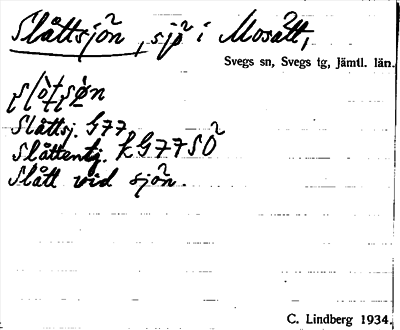 Slåttsjön, sjö i Mosätt,
Svegs sn, Svegs tg, Jämtl. län.
Slåttsj. G77
Slåttentj. KG77SO
Slått vid sjön.
C. Lindberg 1934.